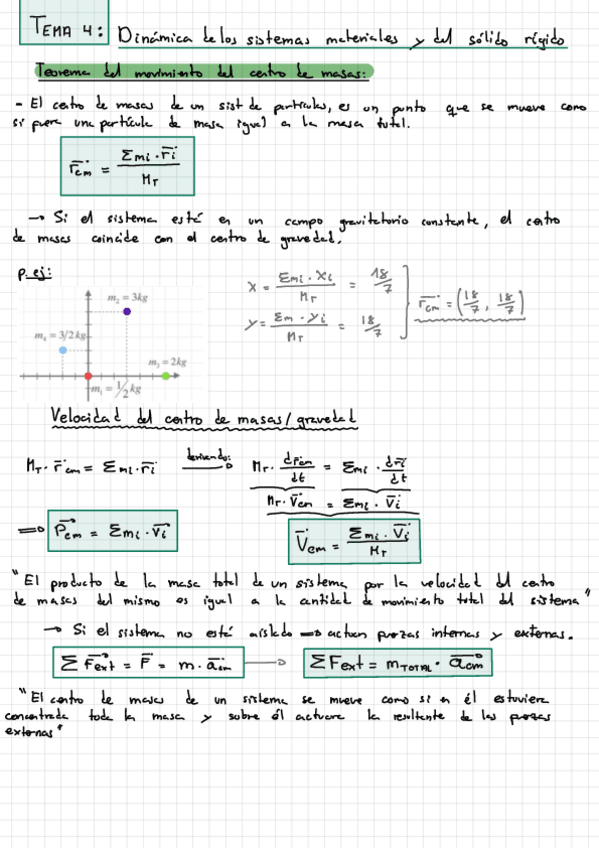 TEMA 4: Dinámica de los sistemas materiales y del sólido rígido
Teorema del movimiento del centro de masas:
- El centro de masas de un sist de partículas, es un punto que se mueve como
si fuera una partícula de masa igual a la masa total.
r⃗cm = Σmi · r⃗i / MT
→ Si el sistema está en un campo gravitatorio constante, el centro
de masas coincide con el centro de gravedad.
p. ej:
m₂ = 3kg
m₄ = 3/2 kg
m₃ = 2kg
m₁ = 1/2 kg
X = Σmi · Xi / MT = 18/7
Y = Σm · yi / MT = 18/7
r⃗cm = (18/7, 18/7)
Velocidad del centro de masas/gravedad
MT · r̄cm = Σmi · r̄i derivando: MT · dr̄cm/dt = Σmi · dr̄i/dt
MT · V̄cm = Σmi · V̄i
⇒ P⃗cm = Σmi · v⃗i V⃗cm = Σmi · V⃗i / MT
"El producto de la masa total de un sistema por la velocidad del centro
de masas del mismo es igual a la cantidad de movimiento total del sistema"
→ Si el sistema no está aislado ⇒ actuan fuerzas internas y externas.
Σ F⃗ext = F⃗ = m · a⃗cm → ΣFext = mTOTAL · a⃗cm
"El centro de masas de un sistema se mueve como si en él estuviera
concentrada toda la masa y sobre él actuara la resultante de las fuerzas
externas"